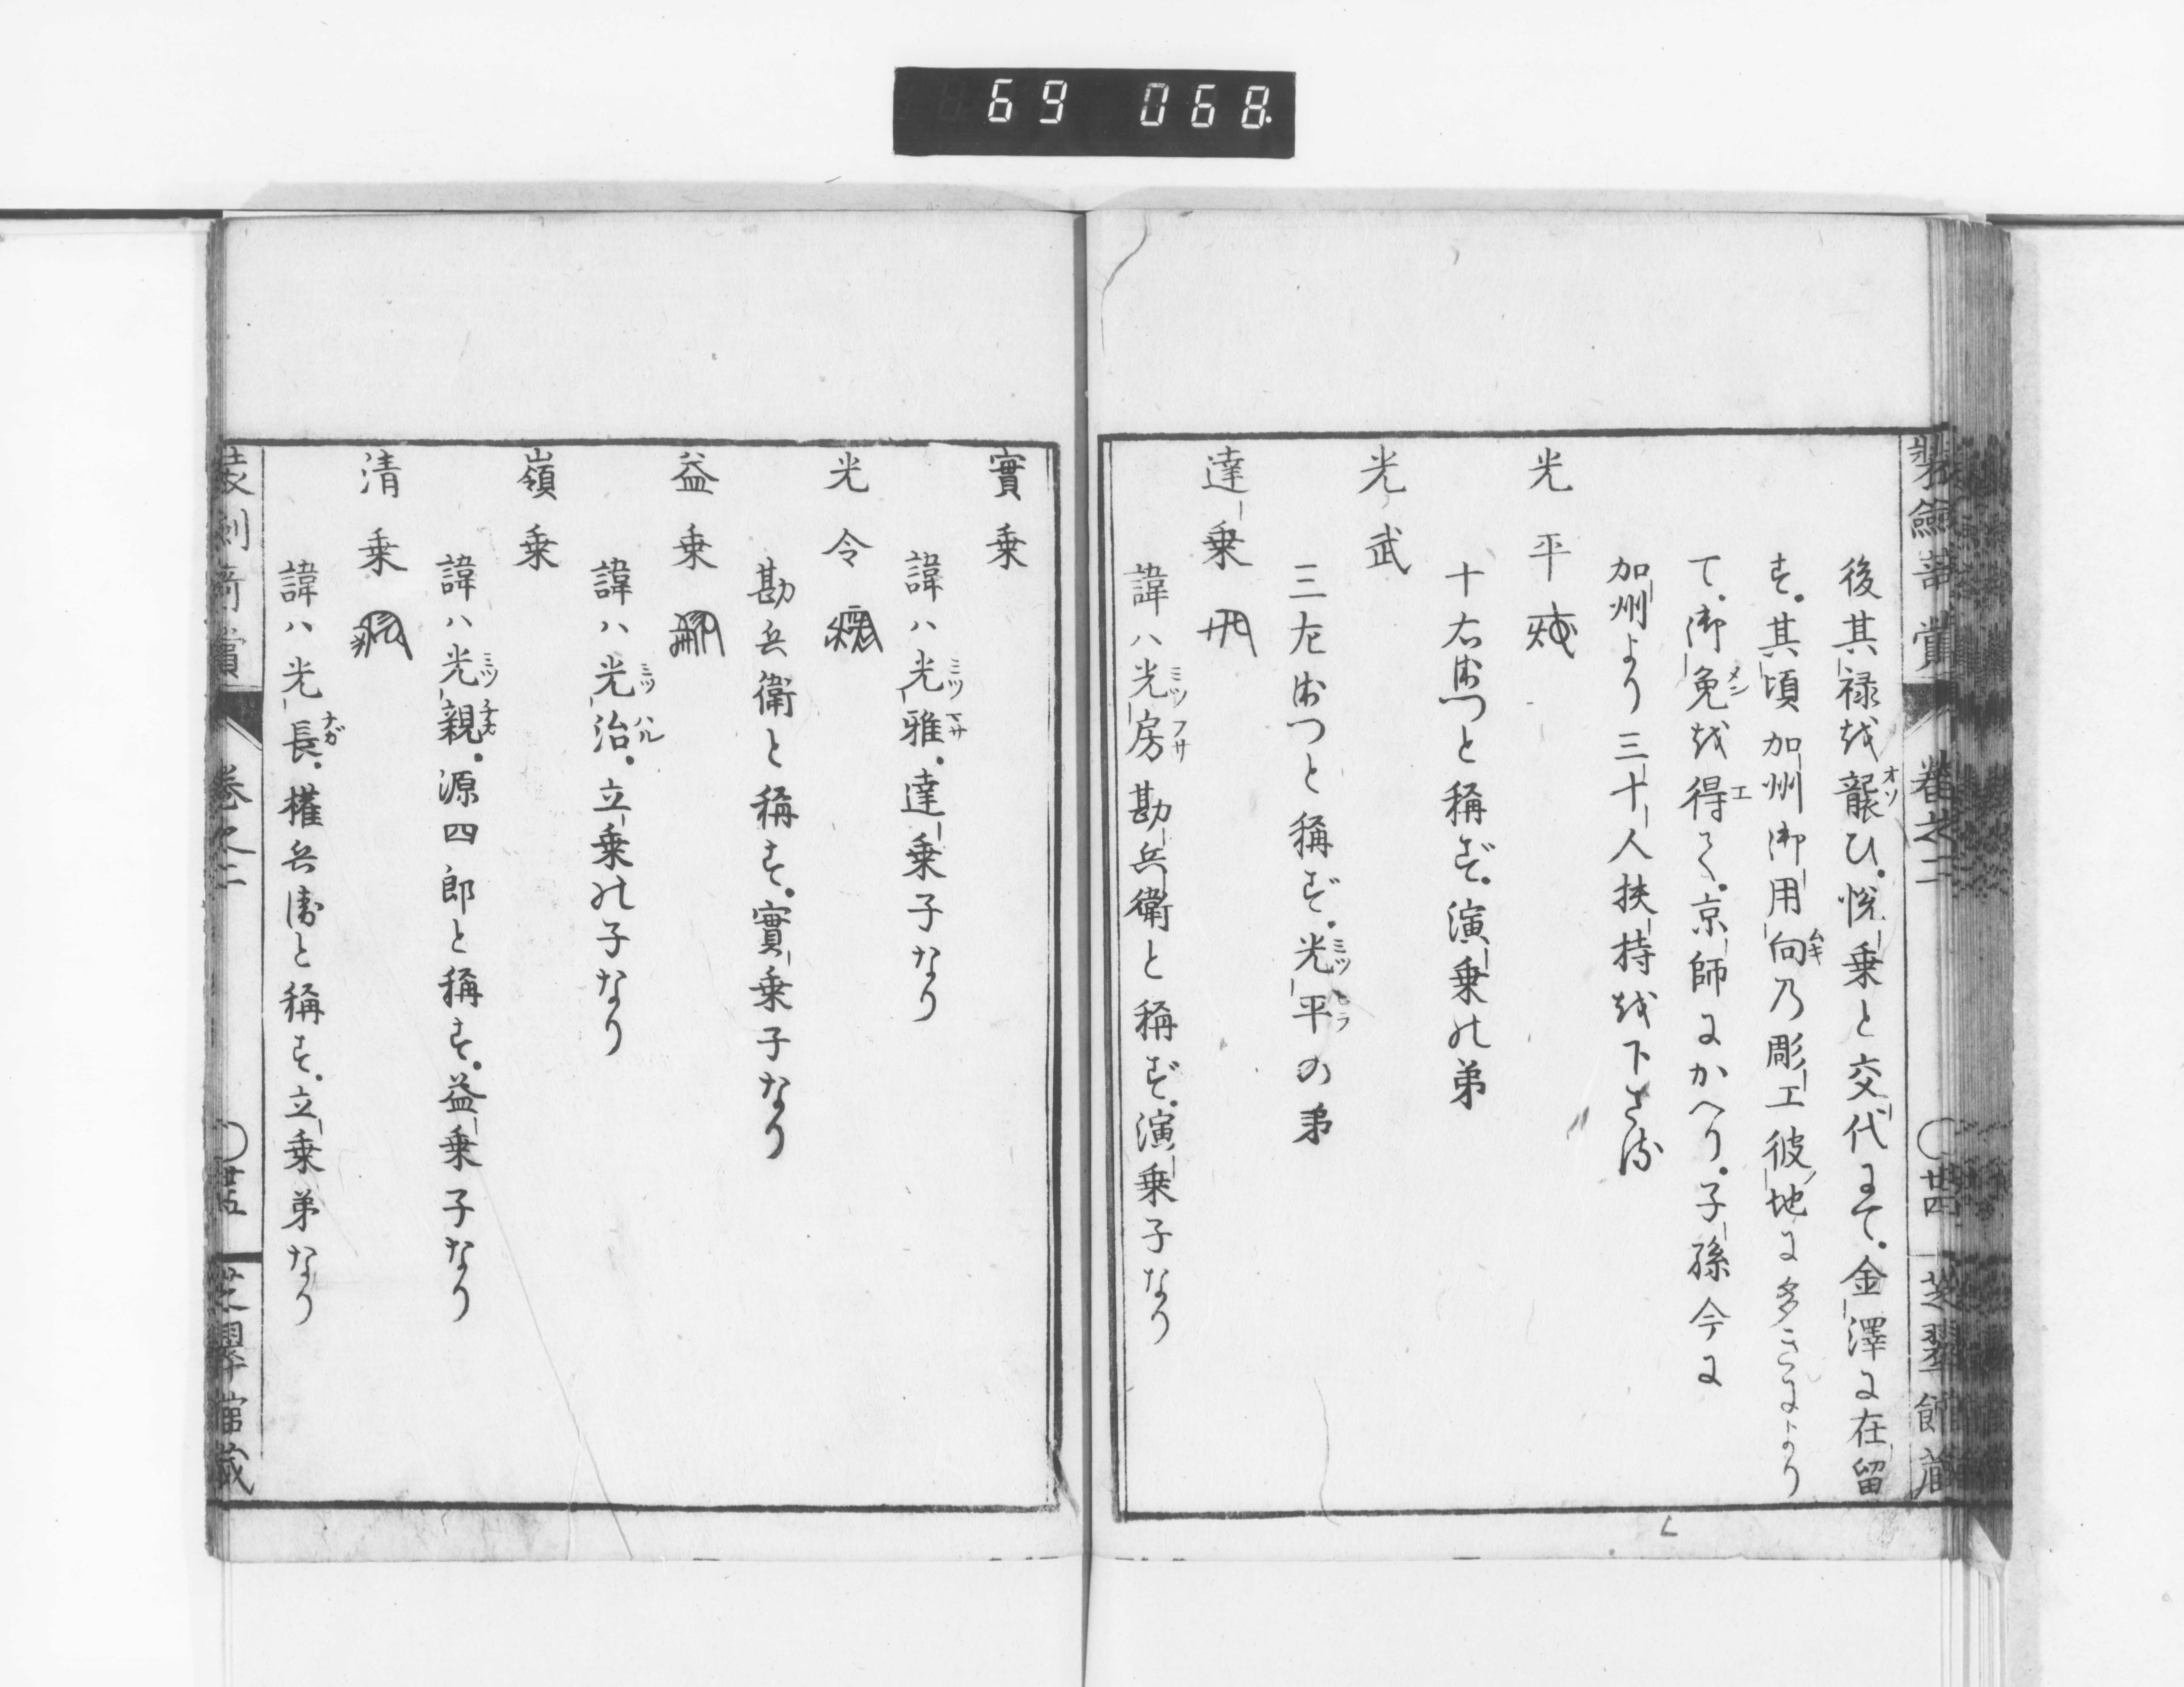 69 068
装劍竒賞 巻之二 〇廿四 芝翠館蔵
後其禄越襲ひ。悦乗と交代まて。金澤に在留
す。其頃加州御用向乃彫工彼地に多きによりて
て。御免越得て。京師にかへり。子孫今に
加州より三十人扶持越下さる
光平
十右衛门と稱ず。演乗の弟
光武
三左衛门と稱ず。光平の弟
達乗
諱ハ光房勘兵衛と稱ず。演乗子なり
實乗
諱ハ光雅。達乗子なり
光令
勘兵衛と稱す。實乗子なり
益乗
諱ハ光治。立乗の子なり
嶺乗
諱ハ光親。源四郎と稱す。益乗子なり
清乗
諱ハ光長。權兵衛と稱す。立乗弟なり
装劍竒賞 巻之二 〇廿五 芝翠館蔵